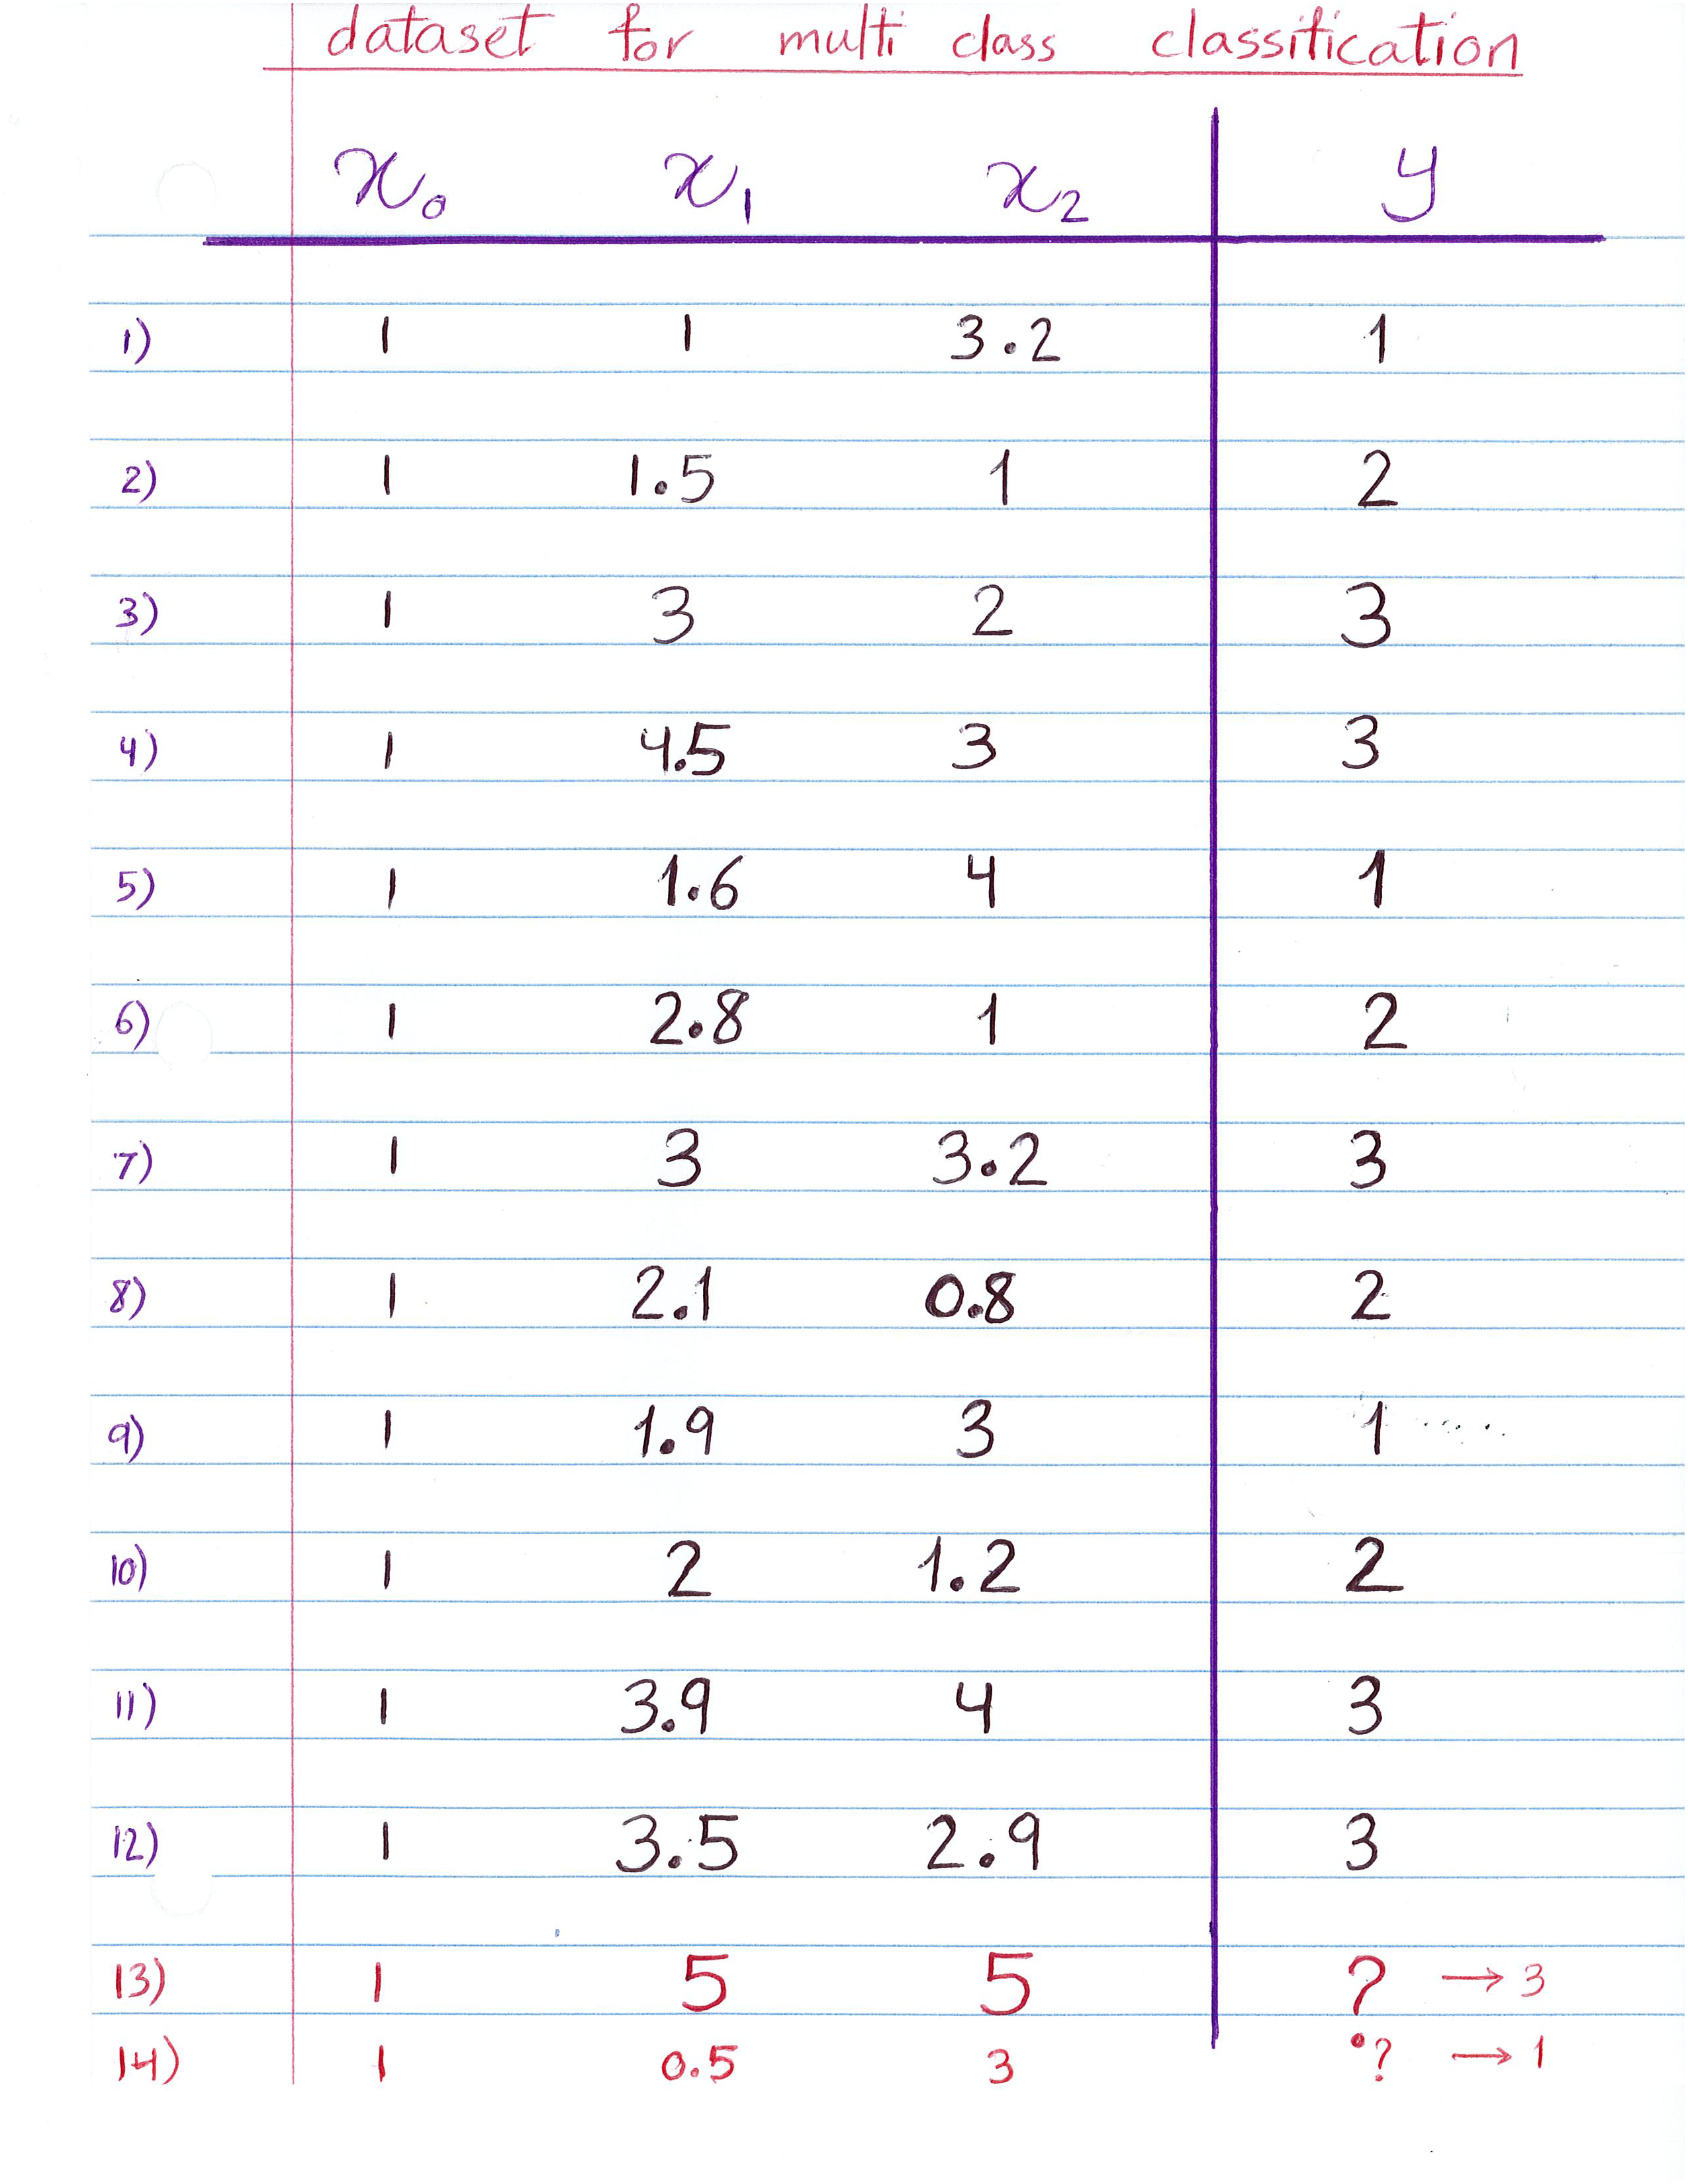 dataset for multi class classification
x₀ x₁ x₂ y
1) 1 1 3.2 1
2) 1 1.5 1 2
3) 1 3 2 3
4) 1 4.5 3 3
5) 1 1.6 4 1
6) 1 2.8 1 2
7) 1 3 3.2 3
8) 1 2.1 0.8 2
9) 1 1.9 3 1
10) 1 2 1.2 2
11) 1 3.9 4 3
12) 1 3.5 2.9 3
13) 1 5 5 ? → 3
14) 1 0.5 3 ? → 1